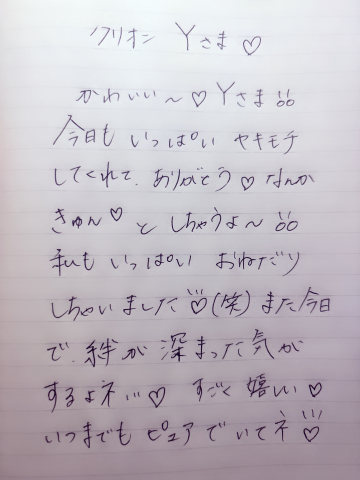 クリオン Yさま♡
かわいい〜♡Yさま!!
今日も いっぱい ヤキモチ
してくれて、ありがとう♡なんか
きゅん♡ としちゃうよ〜!!
私も いっぱい おねだり
しちゃいました♡(笑)また今日
で、絆が 深まった気が
するよネ…♡ すごく 嬉しい♡
いつまでも ピュアで いてネ♡